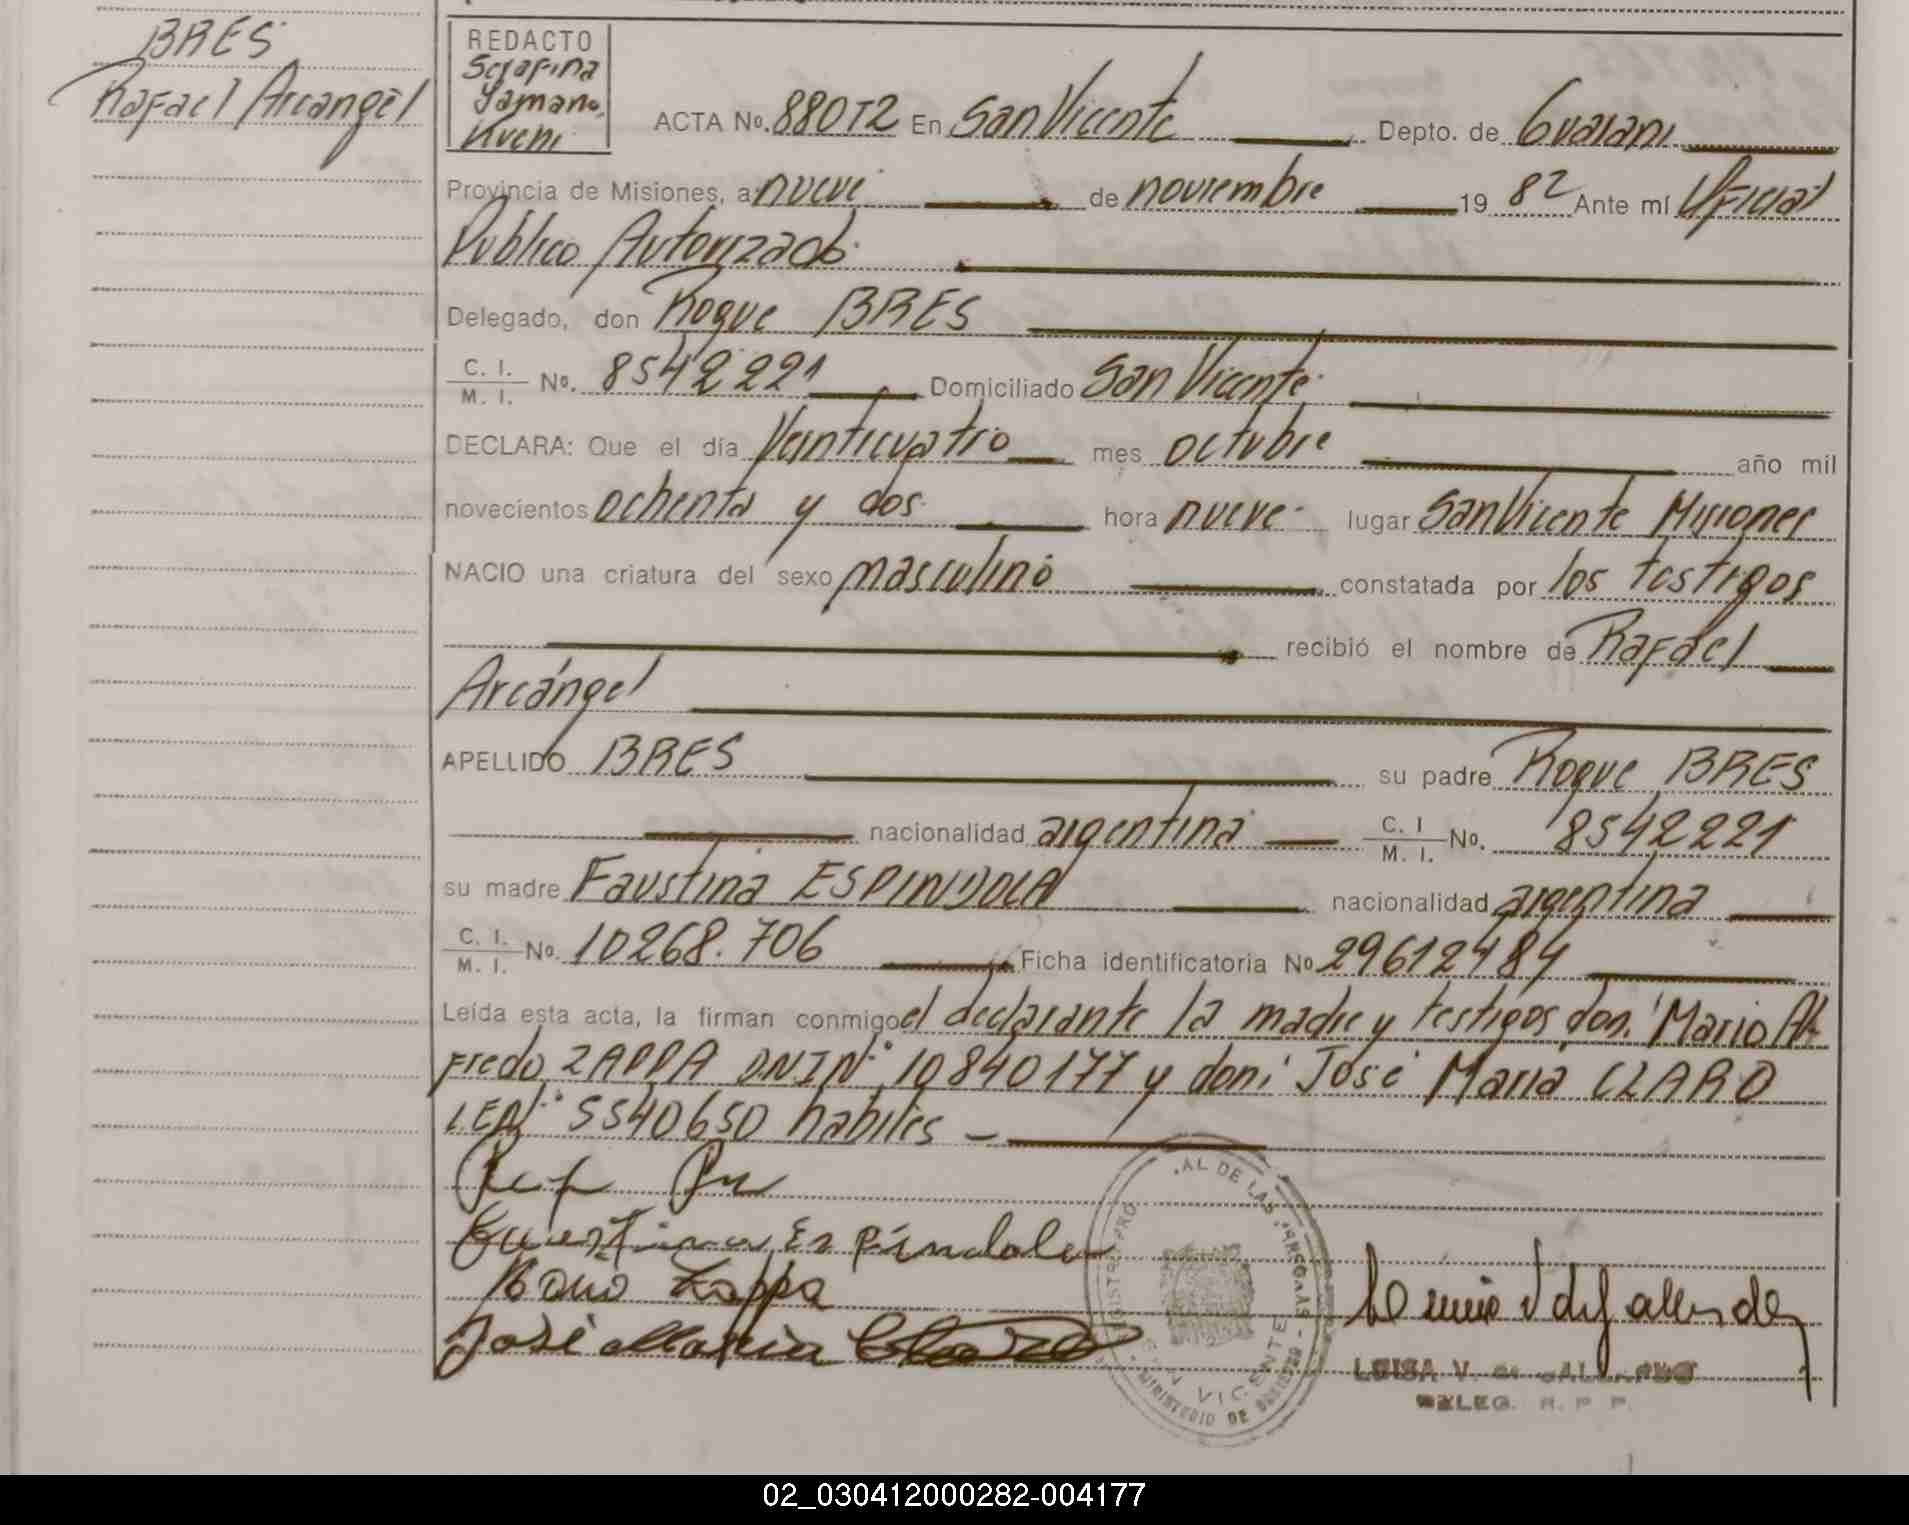 BRES
Rafael Arcangel
REDACTO
Serafina
Yamano.
Kveni
ACTA No. 880T2 En San Vicente Depto. de Guarani
Provincia de Misiones, a nueve de noviembre 19 82 Ante mí Oficial
Publico Autorizado
Delegado, don Roque BRES
C. I. / M. I. No. 8542221 Domiciliado San Vicente
DECLARA: Que el día Veinticuatro mes octubre año mil
novecientos ochenta y dos hora nueve lugar San Vicente Misiones
NACIO una criatura del sexo masculino constatada por los testigos
recibió el nombre de Rafael
Arcángel
APELLIDO BRES su padre Roque BRES
nacionalidad argentina C. I / M. I. No. 8542221
su madre Faustina ESPINDOLA nacionalidad argentina
C. I. / M. I. No. 10268.706 Ficha identificatoria No 29612484
Leída esta acta, la firman conmigo el declarante la madre y testigos don: Mario Al-
fredo ZAPPA D.N.I Nº 10840177 y don: José Maria CLARO
L.E.Nº 5540650 habiles -
Espíndola
Mario Zappa
José Maria Claro
AL DE LAS PERSONAS
SAN VICENTE
MINISTERIO DE GOBIERNO
LUISA V. de GALLARDO
DELEG. R. P. P.
02_030412000282-004177